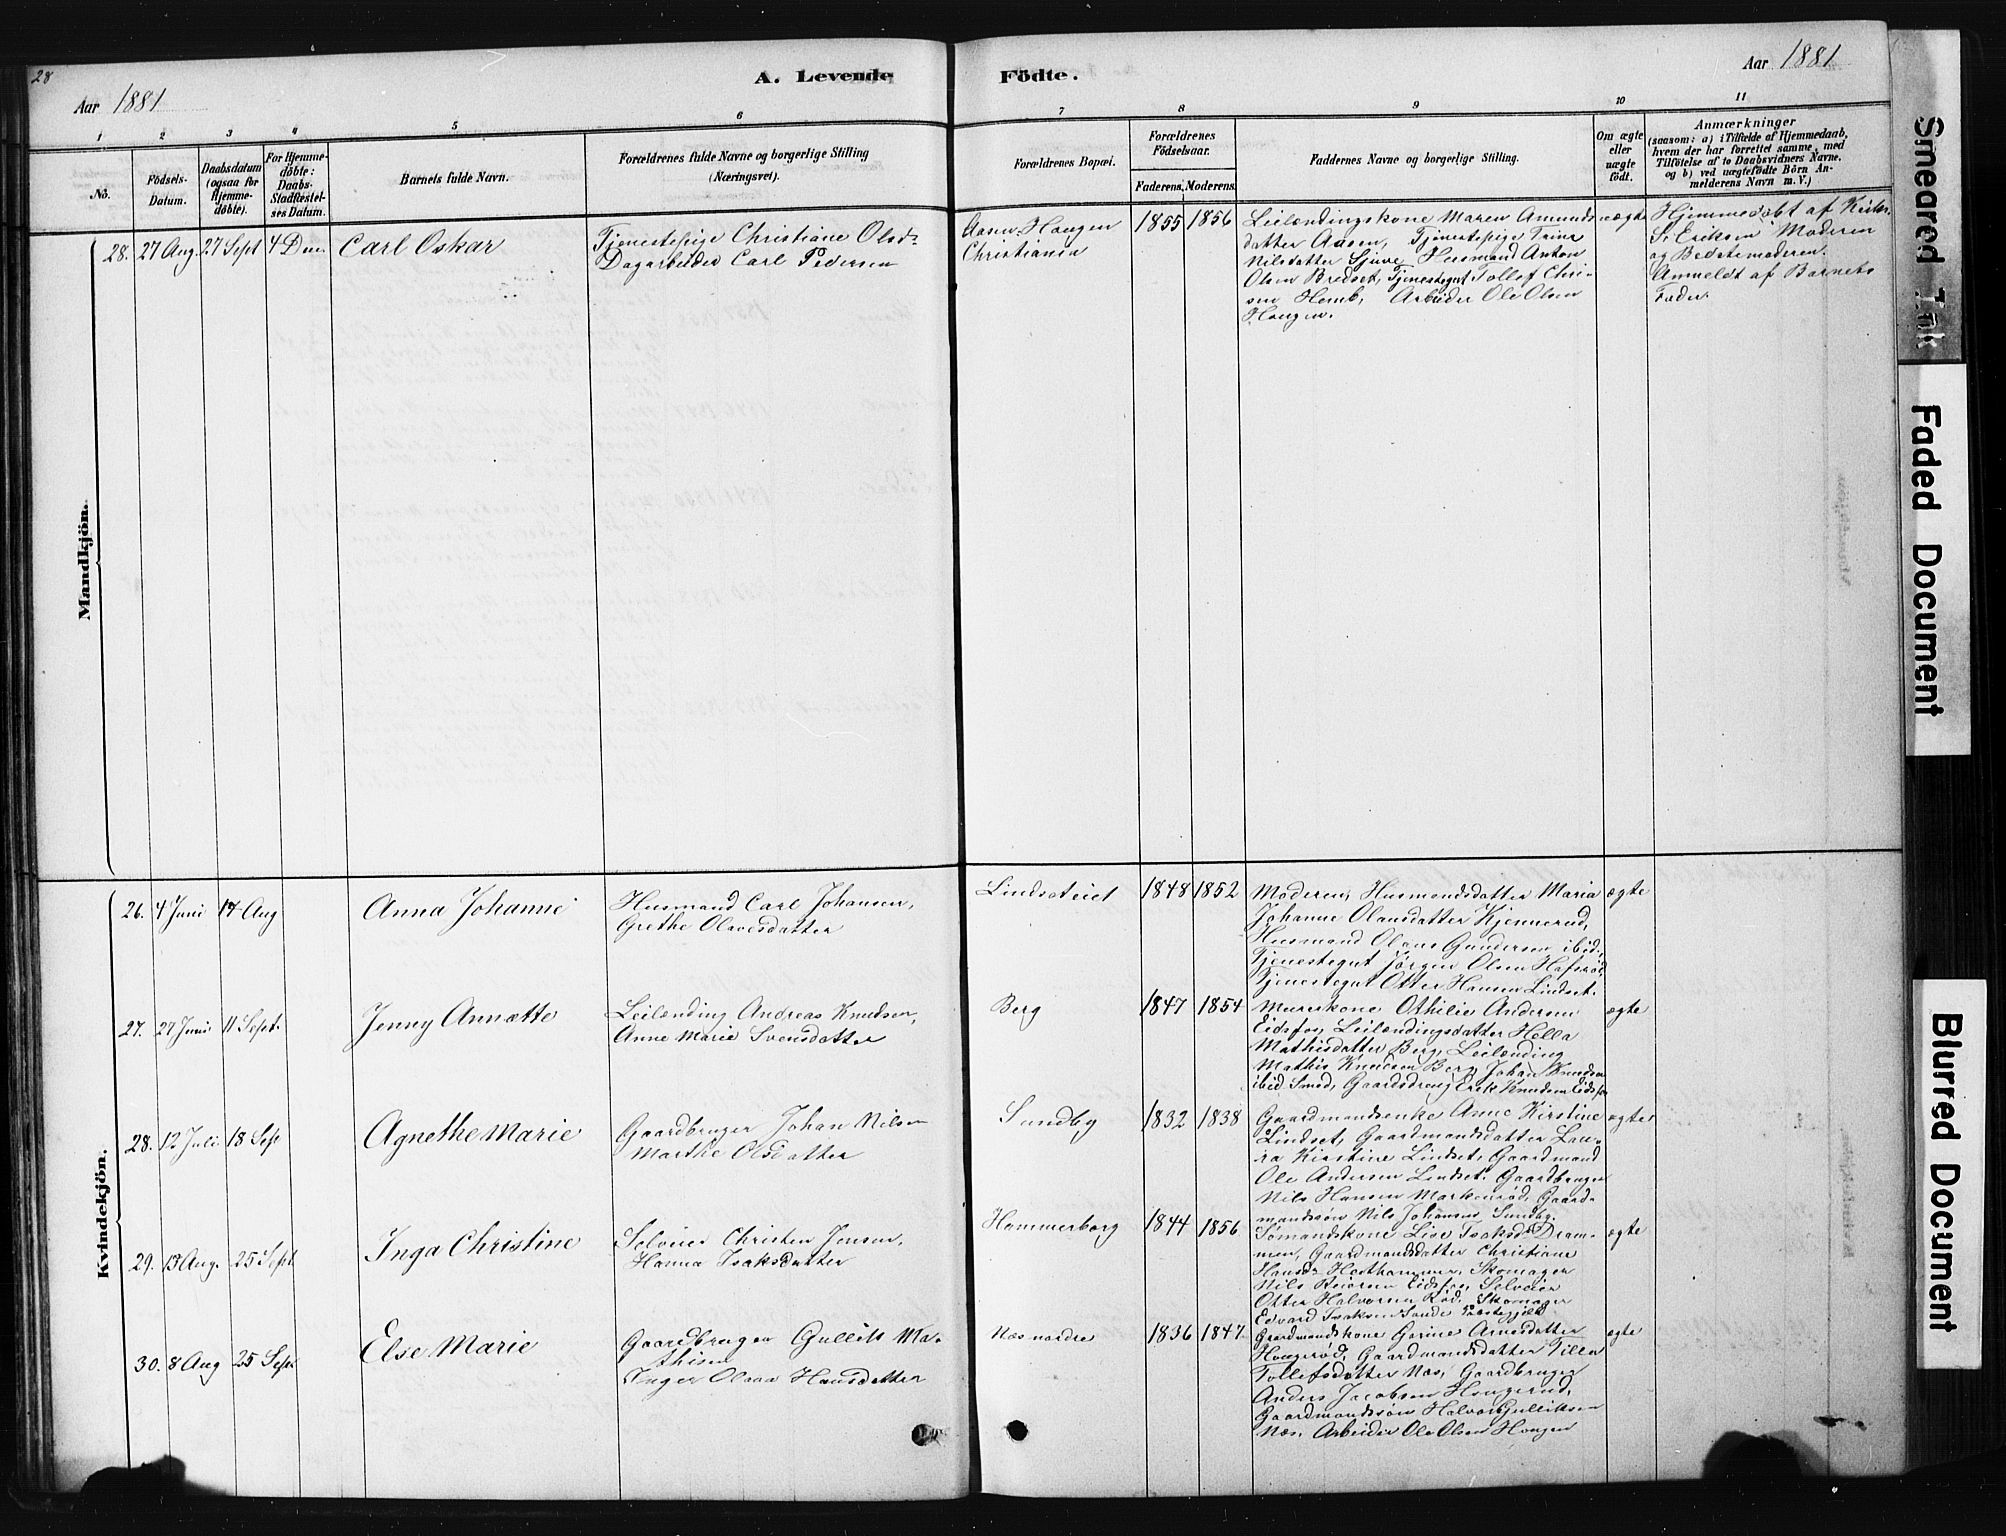 28
A. Levende Födte.
Aar 1881
Aar 1881
1 2 3 4 5 6 7 8 9 10 11
No.
Födsels-Datum.
Daabsdatum (ogsaa for Hjemme-döbte).
For Hjemme-döbte: Daabs-Stadfæstel-ses Datum.
Barnets fulde Navn.
Forældrenes fulde Navne og borgerlige Stilling
(Næringsvei).
Forældrenes Bopæl.
Forældrenes Födselsaar.
Faderens. Moderens.
Faddernes Navne og borgerlige Stilling.
Om ægte eller uægte födt.
Anmærkninger
(saasom: a) i Tilfælde af Hjemmedaab,
hvem der har forrettet samme, med
Tilföielse af to Daabsvidners Navne.
og b) ved uægtefödte Börn An-
melderens Navn m. V.)
Mandkjön.
28. 27 Aug. 27 Sept 4 Dec Carl Oskar
Tjenestepige Christiane Olsd.
Dagarbeider Carl Pedersen
Aasen-Haugen
Christiania
1855 1856
Leilændingskone Maren Amunds
datter Aasen, Tjenestepige Trine
Nilsdatter Sjure Husmand Anton
Olsen Bredset, Tjenestegut Tollef Chri-
sen Hemb, Arbeider Ole Olsen
Haugen.
uægte
Hjemmedøbt af
S. Eriksen Moderen
og Bedstemoderen.
Anmeldt af Barnets
Fader.
Kvindekjön.
26. 4 Juni 14 Aug Anna Johanne
Husmand Carl Johansen,
Grethe Olavesdatter
Lindseteiet
1848 1852
Moderen, Husmandsdatter Maria
Johanne Olausdatter Kjennerud,
Husmand Olaus Gundersen ibid.,
Tjenestegut Jörgen Olsen Hafsröd
Tjenestegut Otter Hansen Lindset.
ægte
27. 27 Juni 11 Sept. Jenny Annette
Leilænding Andreas Knudsen,
Anne Marie Svensdatter
Berg
1847 1854
Murerkone Othilie Andersen
Eidsfos, Leilændingsdatter Hella
Mathisdatter Berg, Leilænding
Mathis Knudsen Berg, Johan Knudsen
ibid Smed, Gaardsdreng Erik Knudsen Eidsfos
ægte
28. 12 Juli 18 Sep Agnethe Marie
Gaardbruger Johan Nilsen
Marthe Olsdatter
Sundby
1832 1838
Gaardmandsenke Anne Kirstine
Lindset, Gaardmandsdatter Lau-
ra Kirstine Lindset, Gaardmand
Ole Andersen Lindset, Gaardbruger
Nils Hansen Markenröd, Gaard-
mandssøn Nils Johansen Sundby.
ægte
29. 13 Aug. 25 Sept Inga Christine
Selveier Christen Jensen,
Hanna Isaksdatter
Hammerborg
1844 1856
Sømandskone Lise Isaksd. Dram-
men, Gaardmandsdatter Christiane
Hansd. Hasthammer, Skomager
Nils Eidsfos, Selveier
Otter Halvorsen Röd, Skomager
Edvard Isaksen Sande Præstegjeld
ægte
30. 8 Aug 25 Sept Else Marie
Gaardbruger Gullik Ma-
thisen
Inger Olava Hansdatter
Næs nordre
1836 1847
Gaardmandskone Gorine Arnesdatter
Haugeröd, Gaardmandsdatter Tilla
Tollefsdatter Næs, Gaardbruger
Anders Jacobsen Haugerud,
Gaardmandssøn Halvor Gulliksen
Næs, Arbeider Ole Olsen Haugen
ægte
Smeared Ink
Faded Document
Blurred Document